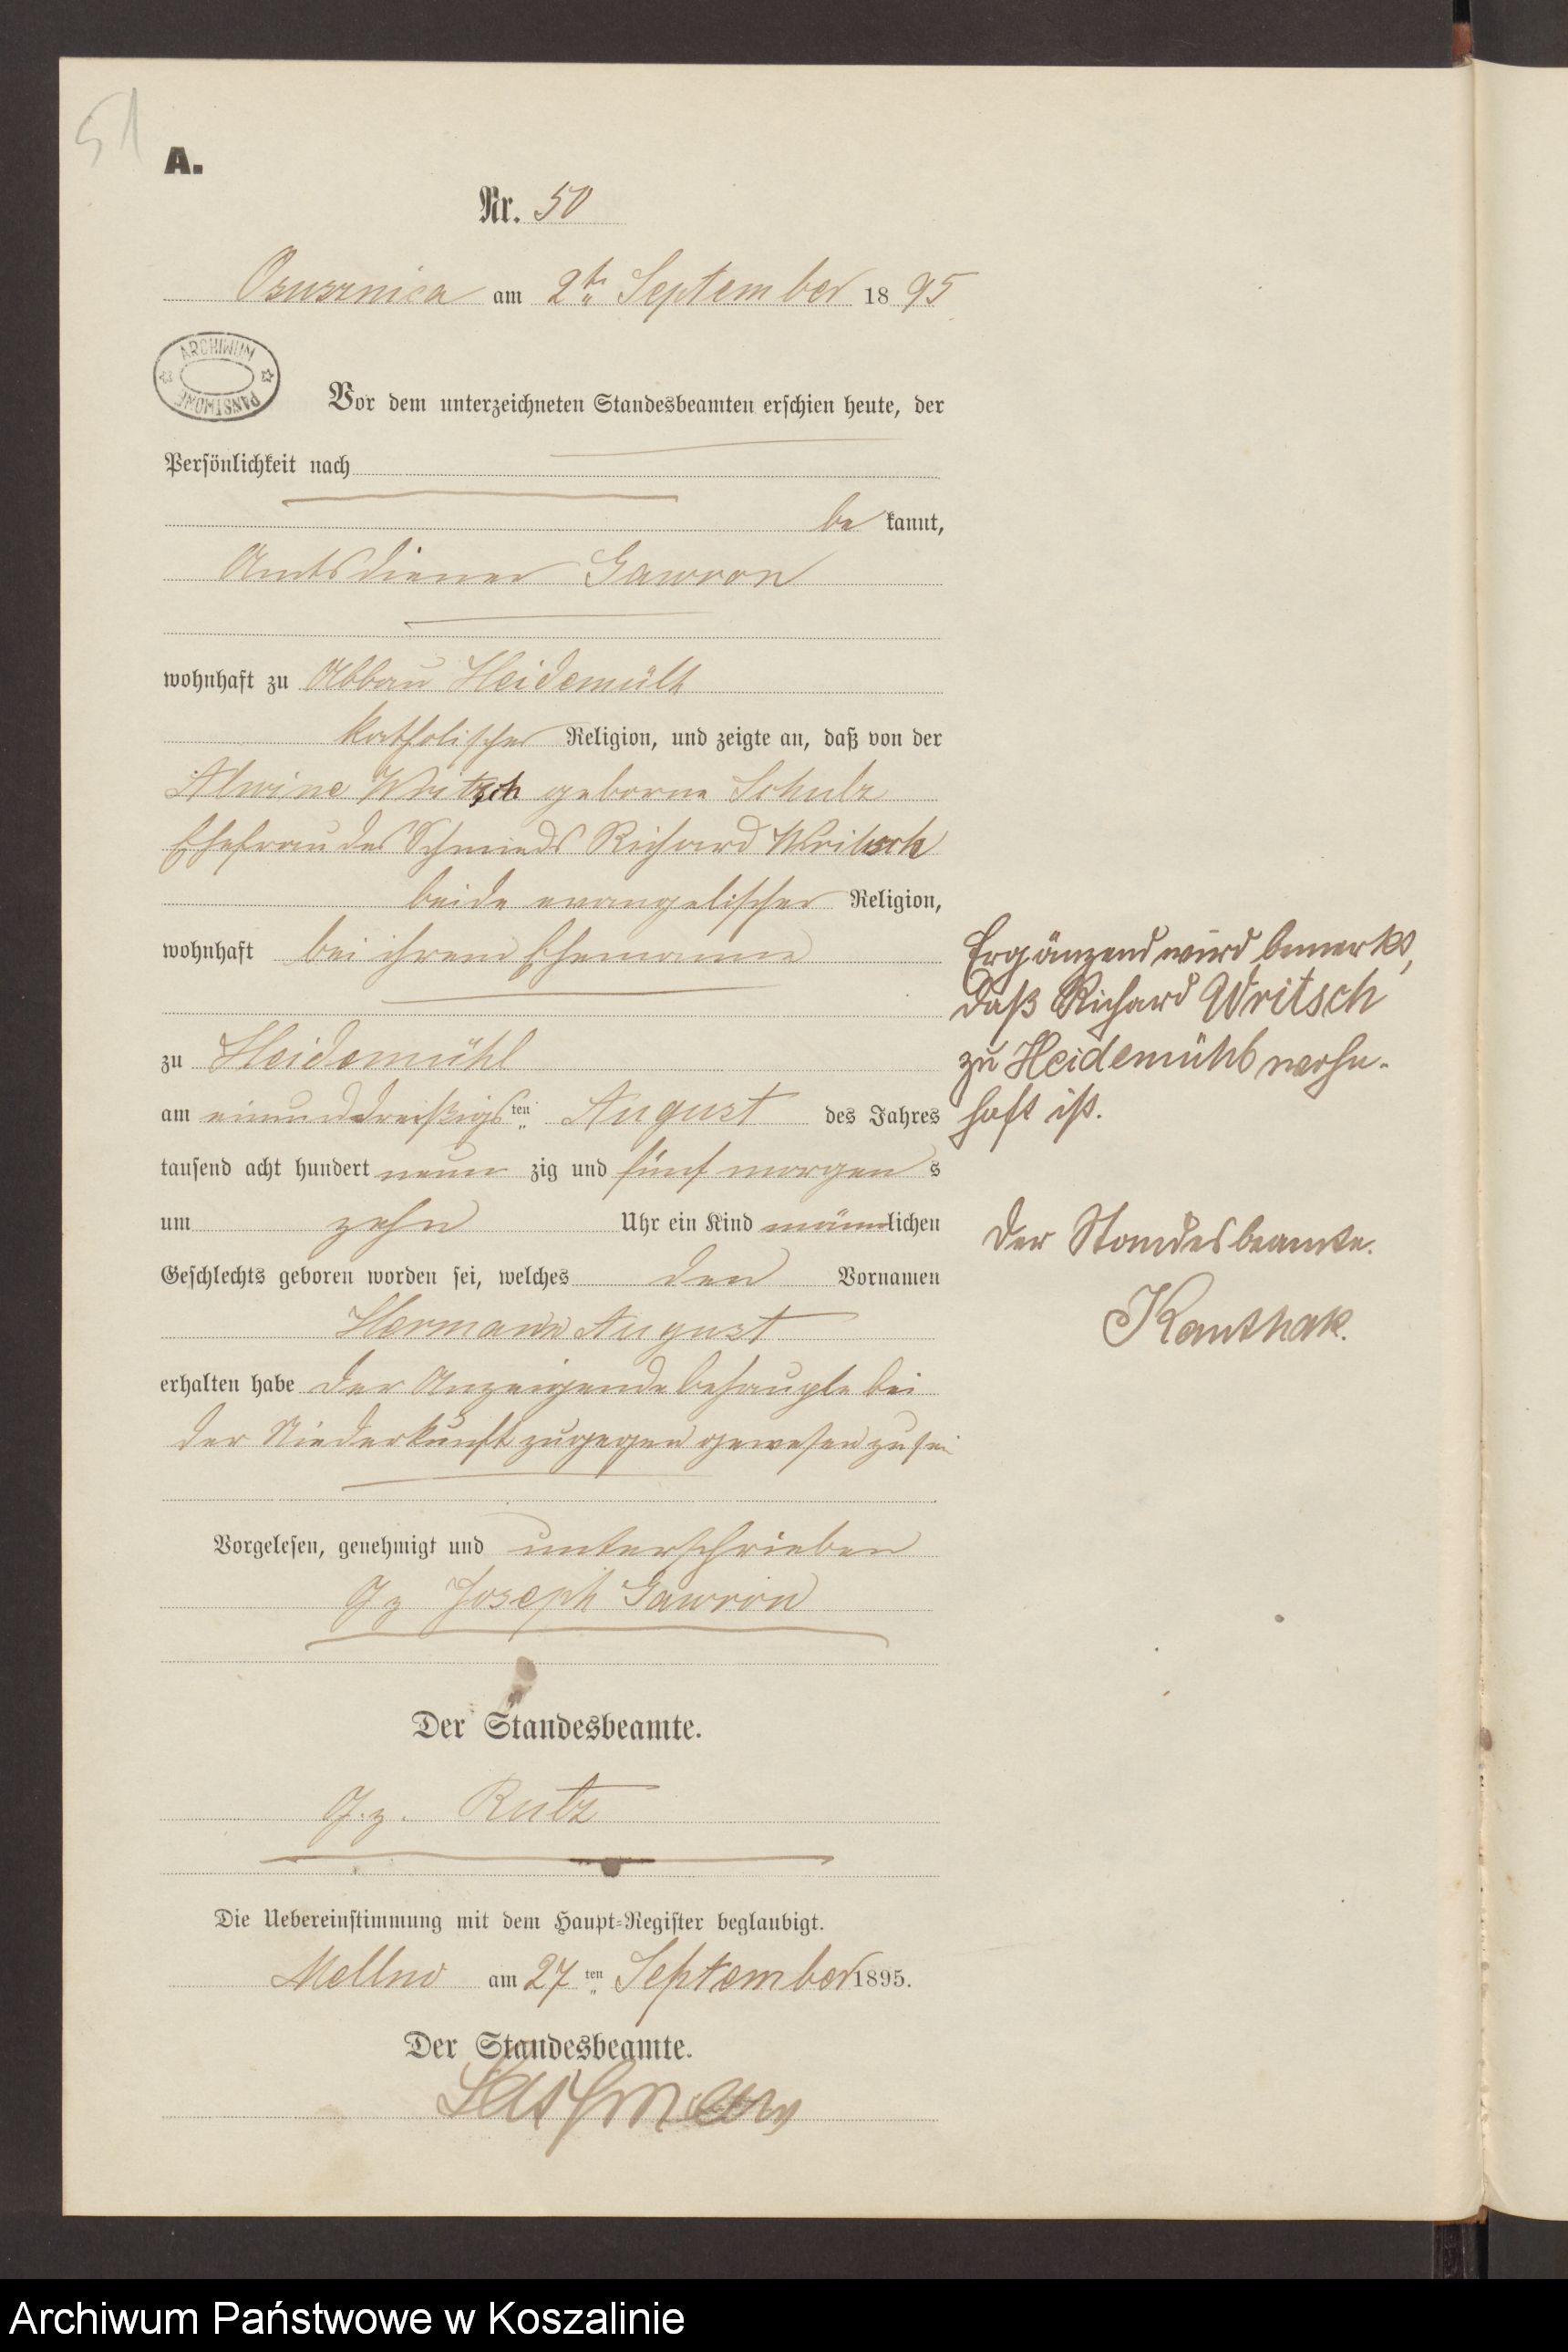 51
A.
Nr. 50
Osusznica am 2te September 1895
ARCHIWUM PAŃSTWOWE
Vor dem unterzeichneten Standesbeamten erschien heute, der
Persönlichkeit nach
be kannt,
Amtsdiener Gawron
wohnhaft zu Abbau Heidemühl
katholischer Religion, und zeigte an, daß von der
Alwine Writsch geborne Schulz
Ehefrau des Schmieds Richard Writsch
beide evangelischer Religion,
wohnhaft bei ihrem Ehemanne
zu Heidemühl
am einunddreißigsten August des Jahres
tausend acht hundert neun zig und fünf morgen s
um zehn Uhr ein Kind männlichen
Geschlechts geboren worden sei, welches den Vornamen
Hermann August
erhalten habe der Anzeigende behaupte bei
der Niederkunft zugegen gewesen zu sei
Vorgelesen, genehmigt und unterschrieben
Gz Joseph Gawron
Der Standesbeamte.
G.z. Rutz
Die Uebereinstimmung mit dem Haupt-Register beglaubigt.
Mellno am 27ten September 1895.
Der Standesbeamte.
Ergänzend wird bemerkt,
daß Richard Writsch
zu Heidemühl wohn-
haft ist.
Der Standesbeamte.
Kanthak.
Archiwum Państwowe w Koszalinie